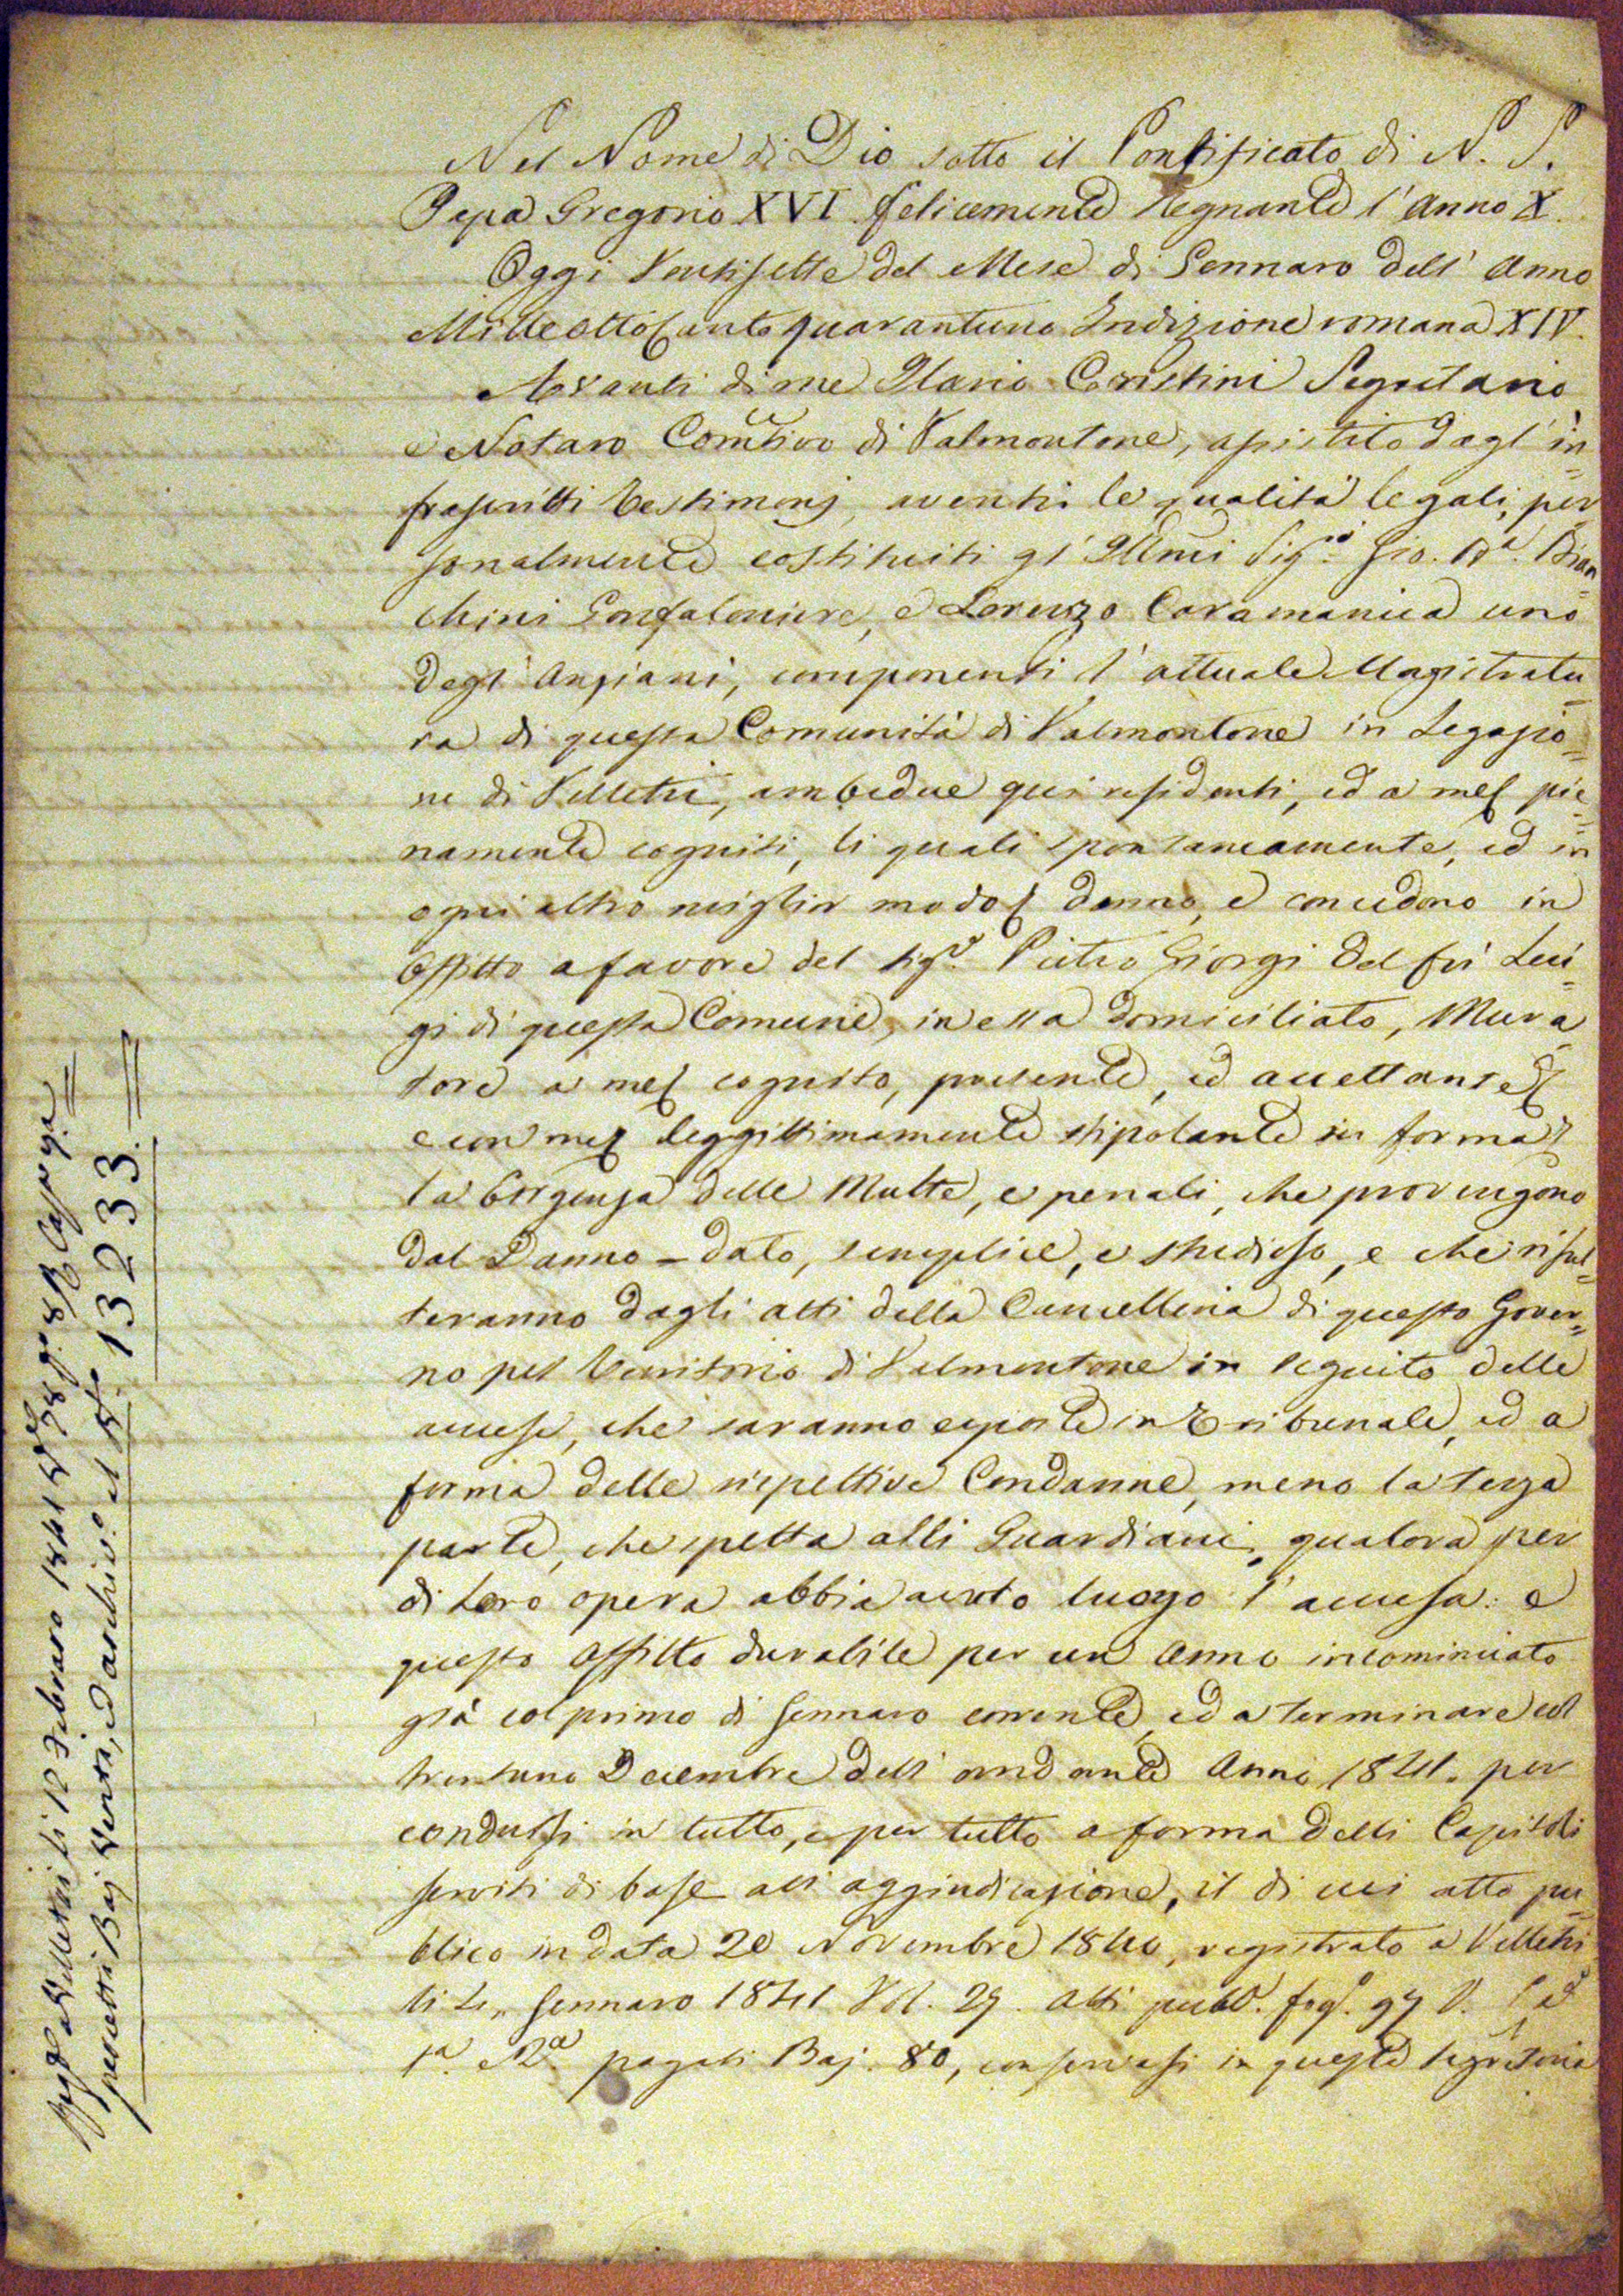 Nel Nome di Dio sotto il Pontificato di N. S.
Papa Gregorio XVI felicemente Regnante l'Anno X.
Oggi Ventisette del Mese di Gennaro dell' Anno
Milleottocentoquarantuno Indizione romana XIV.
Avanti di me Ilario Cristini Segretario
e Notaro di Valmontone, assistito dagl' in=
frascritti Testimonj, aventi le qualità legali, per
sonalmente costituiti gl' Illmi Sigri Gio. Bta. Bian=
chini Gonfaloniere, e Lorenzo Caramanica uno
degl' Anziani, componenti l' attuale Magistratu=
ra di questa Comunità di Valmontone in Legazio=
ne di Velletri, ambedue qui residenti, ed a me pie=
namente cogniti, li quali spontaneamente, ed in
ogni altro miglior modo danno, e concedono in
Affitto a favore del Sigr. Pietro Giorgi del fù Lui=
gi di questa Comune, in essa domiciliato, Mura=
tore a me cognito, presente, ed accettante
e con me leggittimamente stipolante in forma
la Esigenza delle Multe, e penali, che provengono
dal Danno=dato, semplice, e studioso, e che risul=
teranno dagli atti della Cancelleria di questo Gover=
no pel Territorio di Valmontone in seguito delle
accuse, che saranno esposte in Tribunale, ed a
forma delle rispettive Condanne, meno la terza
parte, che spetta alli Guardiani, qualora per
di loro opera abbia avuto luogo l' accusa: e
questo Affitto durabile per un Anno incominciato
già col primo di Gennaro corrente, ed a terminare col
trentuno Decembre dell' andante Anno 1841. per
condursi in tutto, e per tutto a forma delli Capitoli
serviti di base all' aggiudicazione, il di cui atto pu=
blico in data 20 Novembre 1840, registrato a Velletri
li Gennaro 1841 Vol. 29. Atti pubb. fogl. 97 V.
1a pagati Baj. 80, conservasi in questa Segretaria
Regto a Velletri li 12 Febraro 1841
Baj Venti, ed archivo al No 13233.